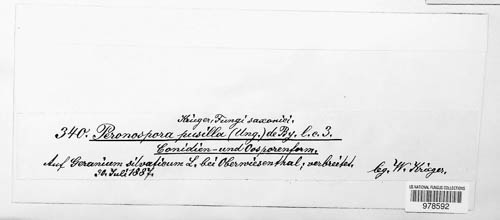 Krieger, Fungi saxonici.
340. Peronospora pusilla (Ung.) de By. l. c. 3.
Conidien- und Oosporenform.
Auf Geranium silvaticum L. bei Oberwiesenthal; verbreitet.
20. Juli 1887. leg. W. Krieger.
US NATIONAL FUNGUS COLLECTIONS
978592